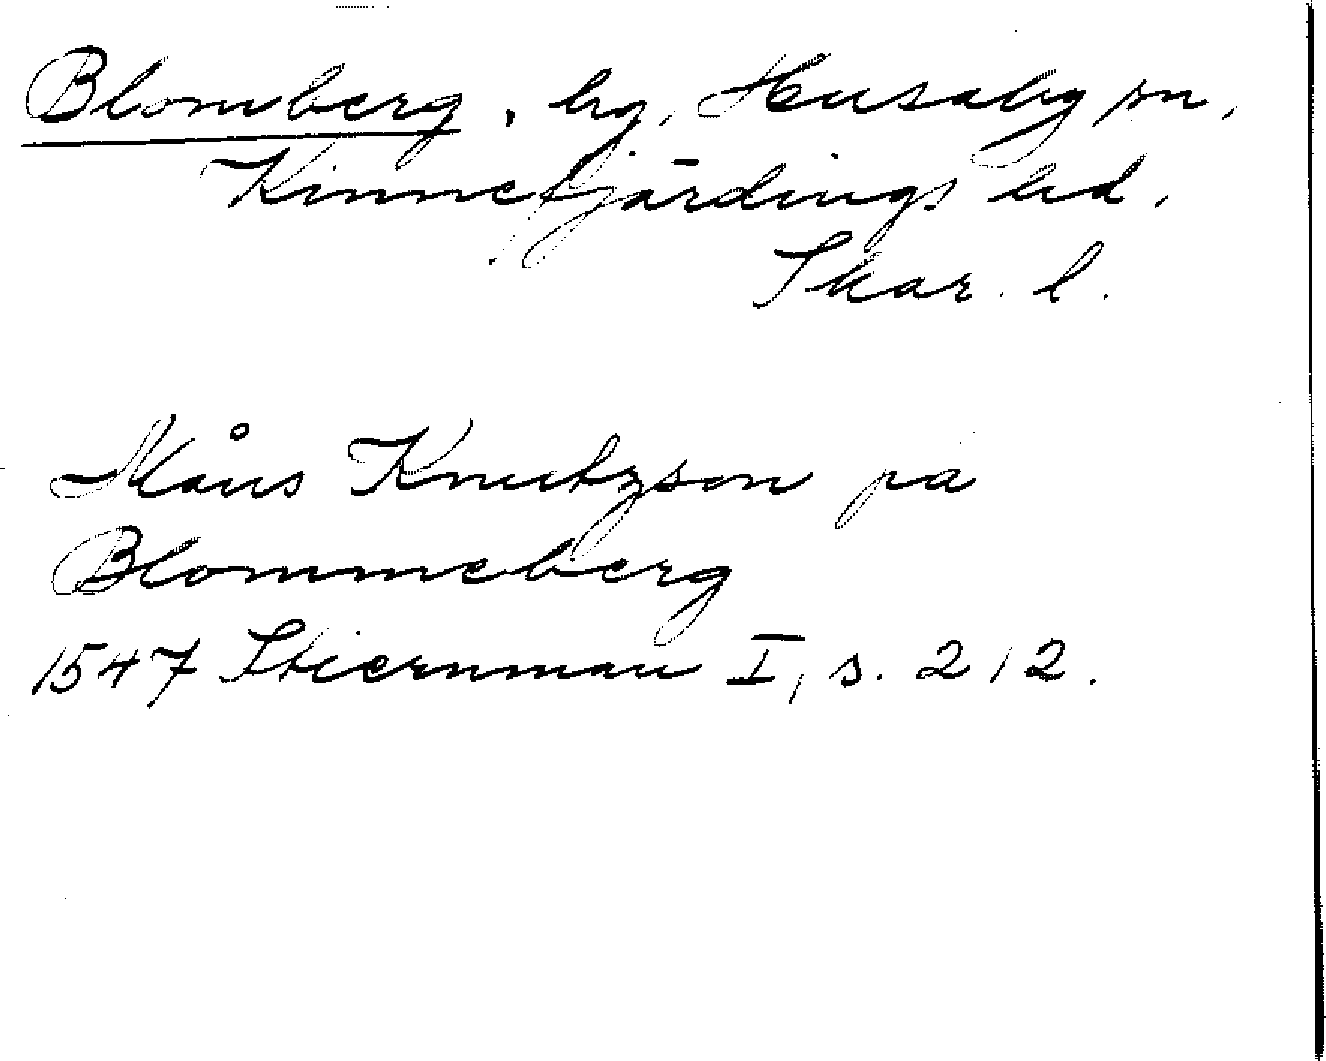 Blomberg, by, Husaby sn,
Kinnefjärdings hd.
Skar. l.
Måns Knutzson pa
Blommeberg
1547 Stiernman I, s. 212.